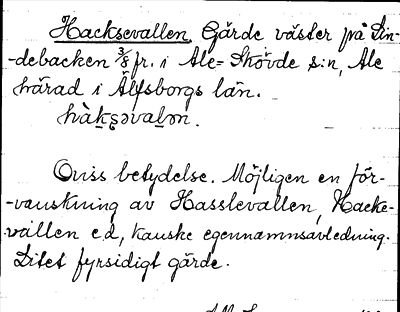 Hacksevallen Gärde väster på Lin-
-debacken 3/8 fr. i Ale-Skövde s:n, Ale
härad i Älfsborgs län.
hàk̠ʂəval̠ən.
Oviss betydelse. Möjligen en för-
-vanskning av Hasslevallen, Hacke-
vallen e.d, kanske egennamnsavledning.
Litet fyrsidigt gärde.